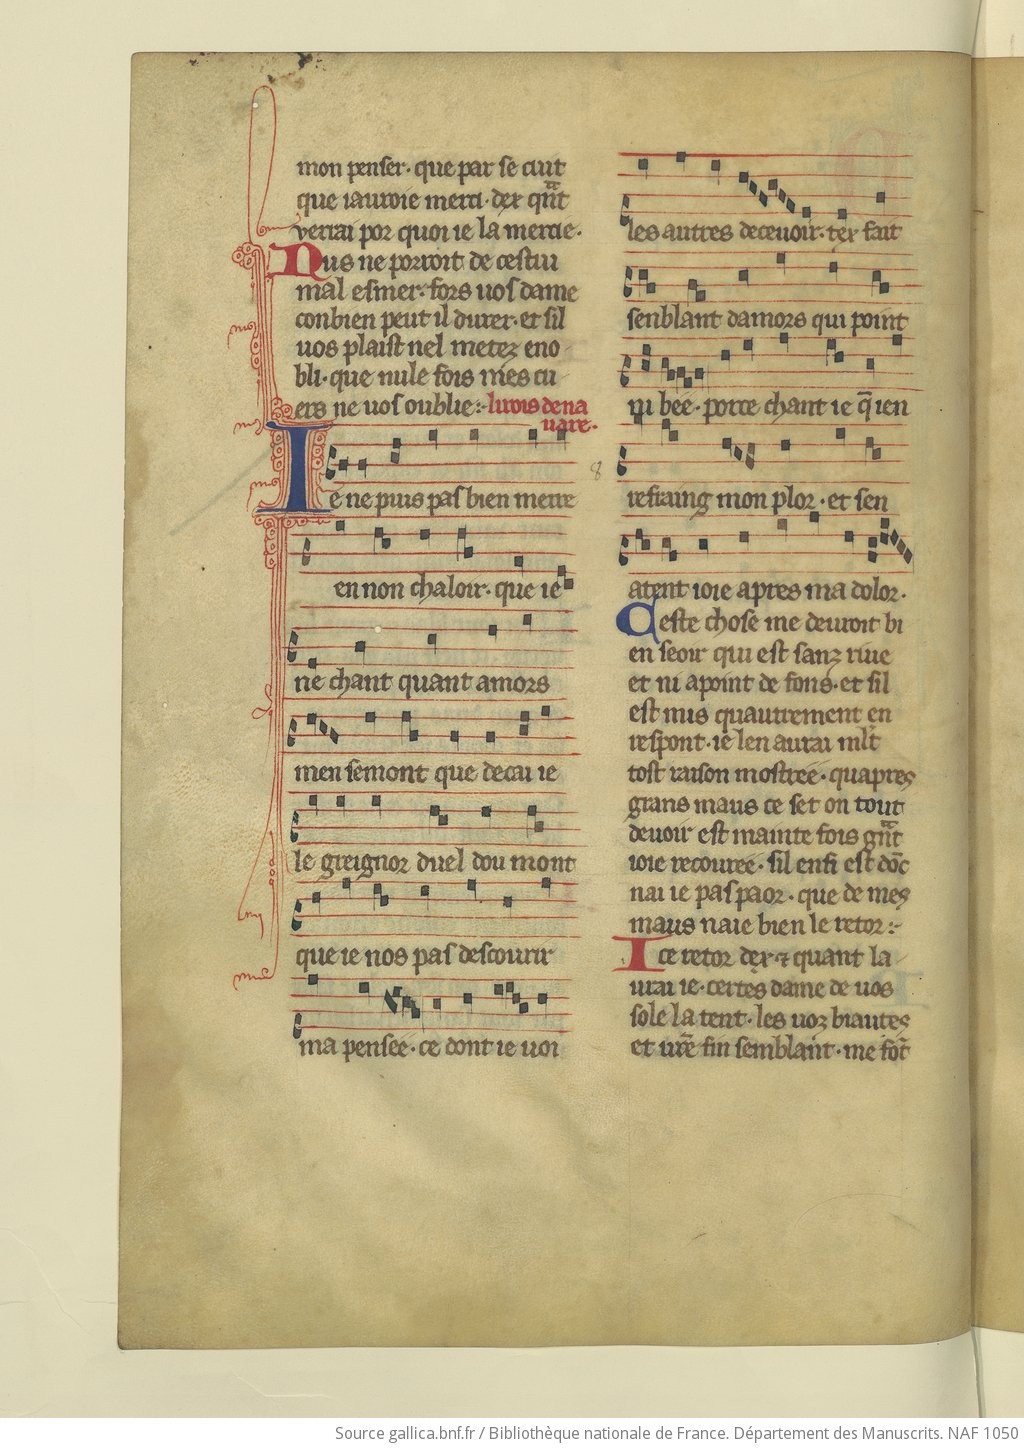 mon penser. que par se cuit
que iauroie merci. dex q̃nt
verrai por quoi ie la mercie.
Nus ne porroit de cestui
mal esmer. fors uos dame
conbien peut il durer. et sil
uos plaist nel metez eno
bli. que nule fois mes cu
ers ne uos oublie:- li rois de na
uare.
Ie ne puis pas bien metre
en non chaloir. que ie
ne chant quant amors
men semont que de cai ie
le greignor duel dou mont
que ie nos pas descourir
ma pensee. ce dont ie uoi
les autres deceuoir. tex fait
senblant damors qui point
ni bee. porce chant ie q̃ ien
8
refraing mon plor. et sen
atent ioie apres ma dolor.
Ceste chose me deuroit bi
en seoir qui est sanz riue
et ni a point de fons. et sil
est mis quautrement en
respont. ie len aurai ml̃t
tost raison mostree. quapres
grans maus ce set on tout
deuoir est mainte fois gñt
ioie recouree. sil ensi est dõc
nai ie pas paor. que de mes
maus naie bien le retor:-
Ice retor dex ⁊ quant la
urai ie. certes dame de uos
sole la tent. les uoz biautes
et ur̃e fin semblant. me fõt
Source gallica.bnf.fr / Bibliothèque nationale de France. Département des Manuscrits. NAF 1050